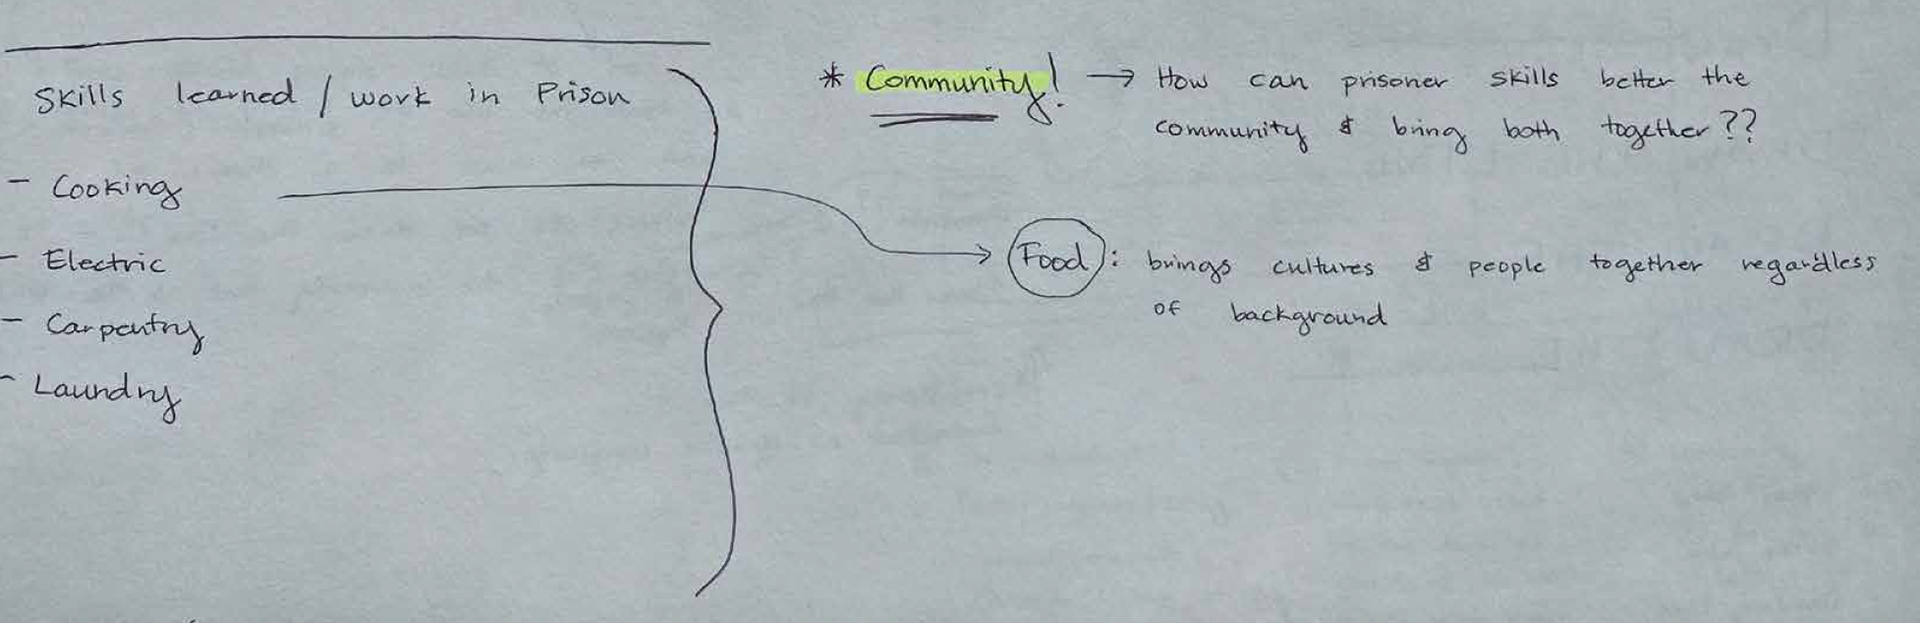 Skills learned / work in Prison
- Cooking
- Electric
- Carpentry
- Laundry
* Community! → How can prisoner skills better the
community & bring both together??
Food: brings cultures & people together regardless
of background